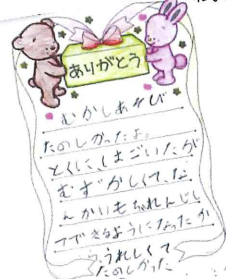 ありがとう
むかしあそび
たのしかったよ。
とくに、はごいたが
むずかしくて、な
んかいもれんじし
てできるようになったか
らうれしくて
たのしかった